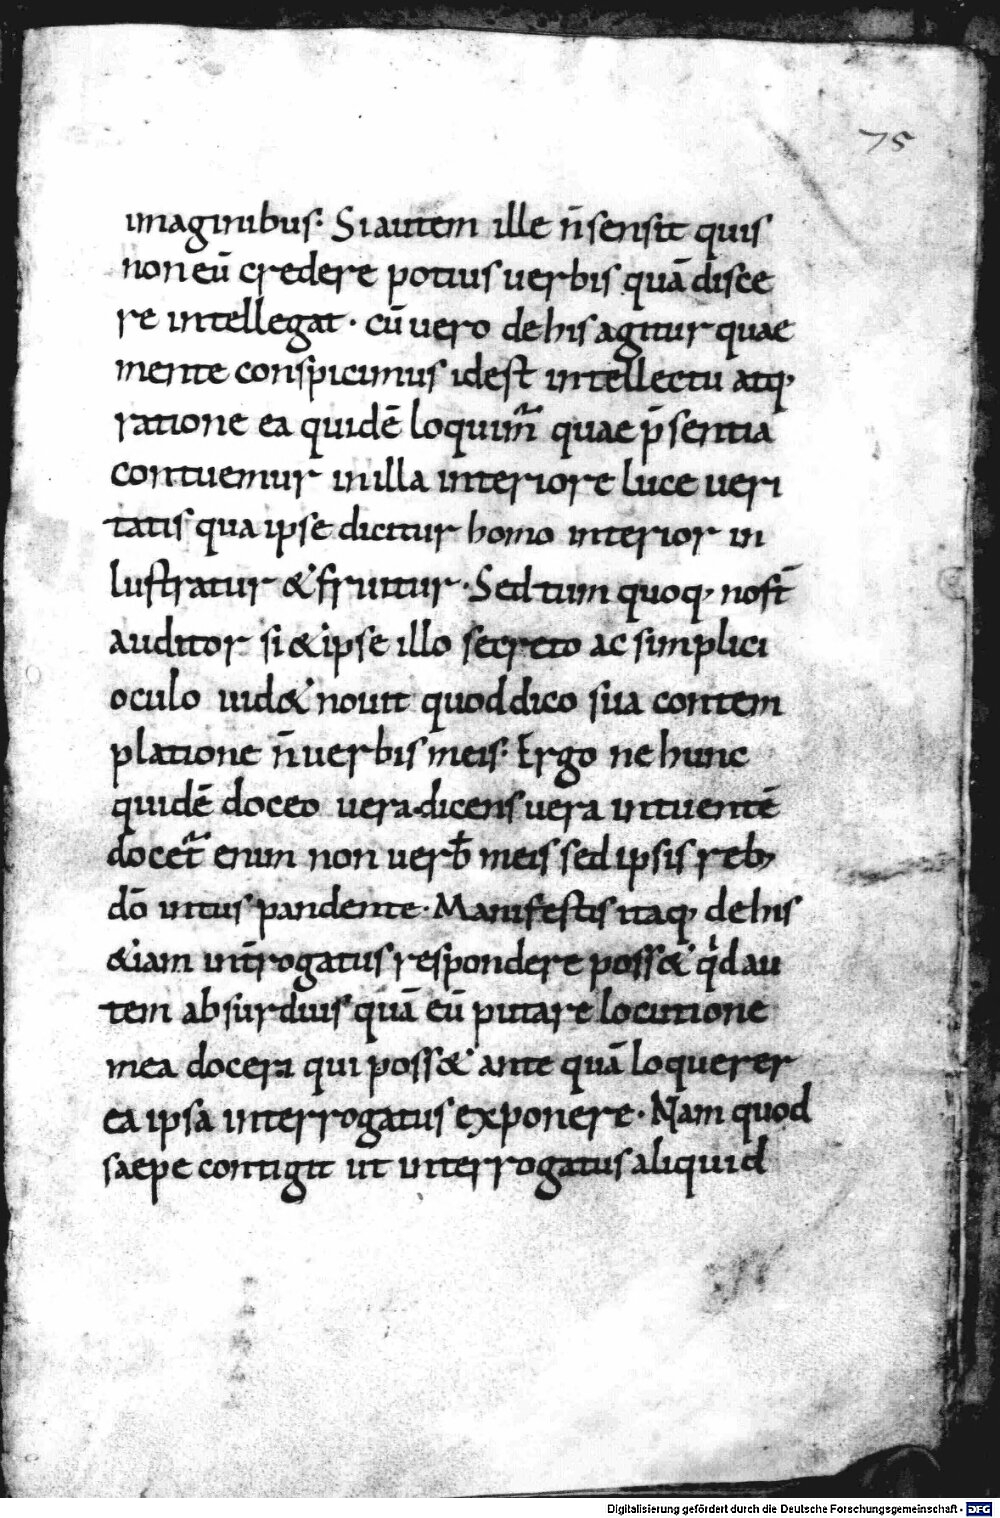 75
imaginibus: Si autem ille n̄ sensit quis
non eū credere potius uerbis quā disce
re intellegat · cū uero de his agitur quae
mente conspicimus id est intellectu atq;
ratione ea quidē loquim̃ quae p̄sentia
contuemur in illa interiore luce ueri
tatis qua ipse dicitur homo interior in
lustratur & fruitur · Sed tum quoq; nost̄
auditor si & ipse illo secreto ac simplici
oculo uid& nouit quod dico sua contem
platione n̄ uerbis meis: Ergo ne hunc
quidē doceo uera dicens uera intuentē
docet̃ enim non uerb̄ meis sed ipsis reb;
dō intus pandente · Manifestis itaq; de his
&iam int̄rogatus respondere poss& qͥd au
tem absurdius quā eū putare locutione
mea doceri qui poss& ante quā loquerer
ea ipsa interrogatus exponere · Nam quod
saepe contigit ut interrogatus aliquid
Digitalisierung gefördert durch die Deutsche Forschungsgemeinschaft - DFG